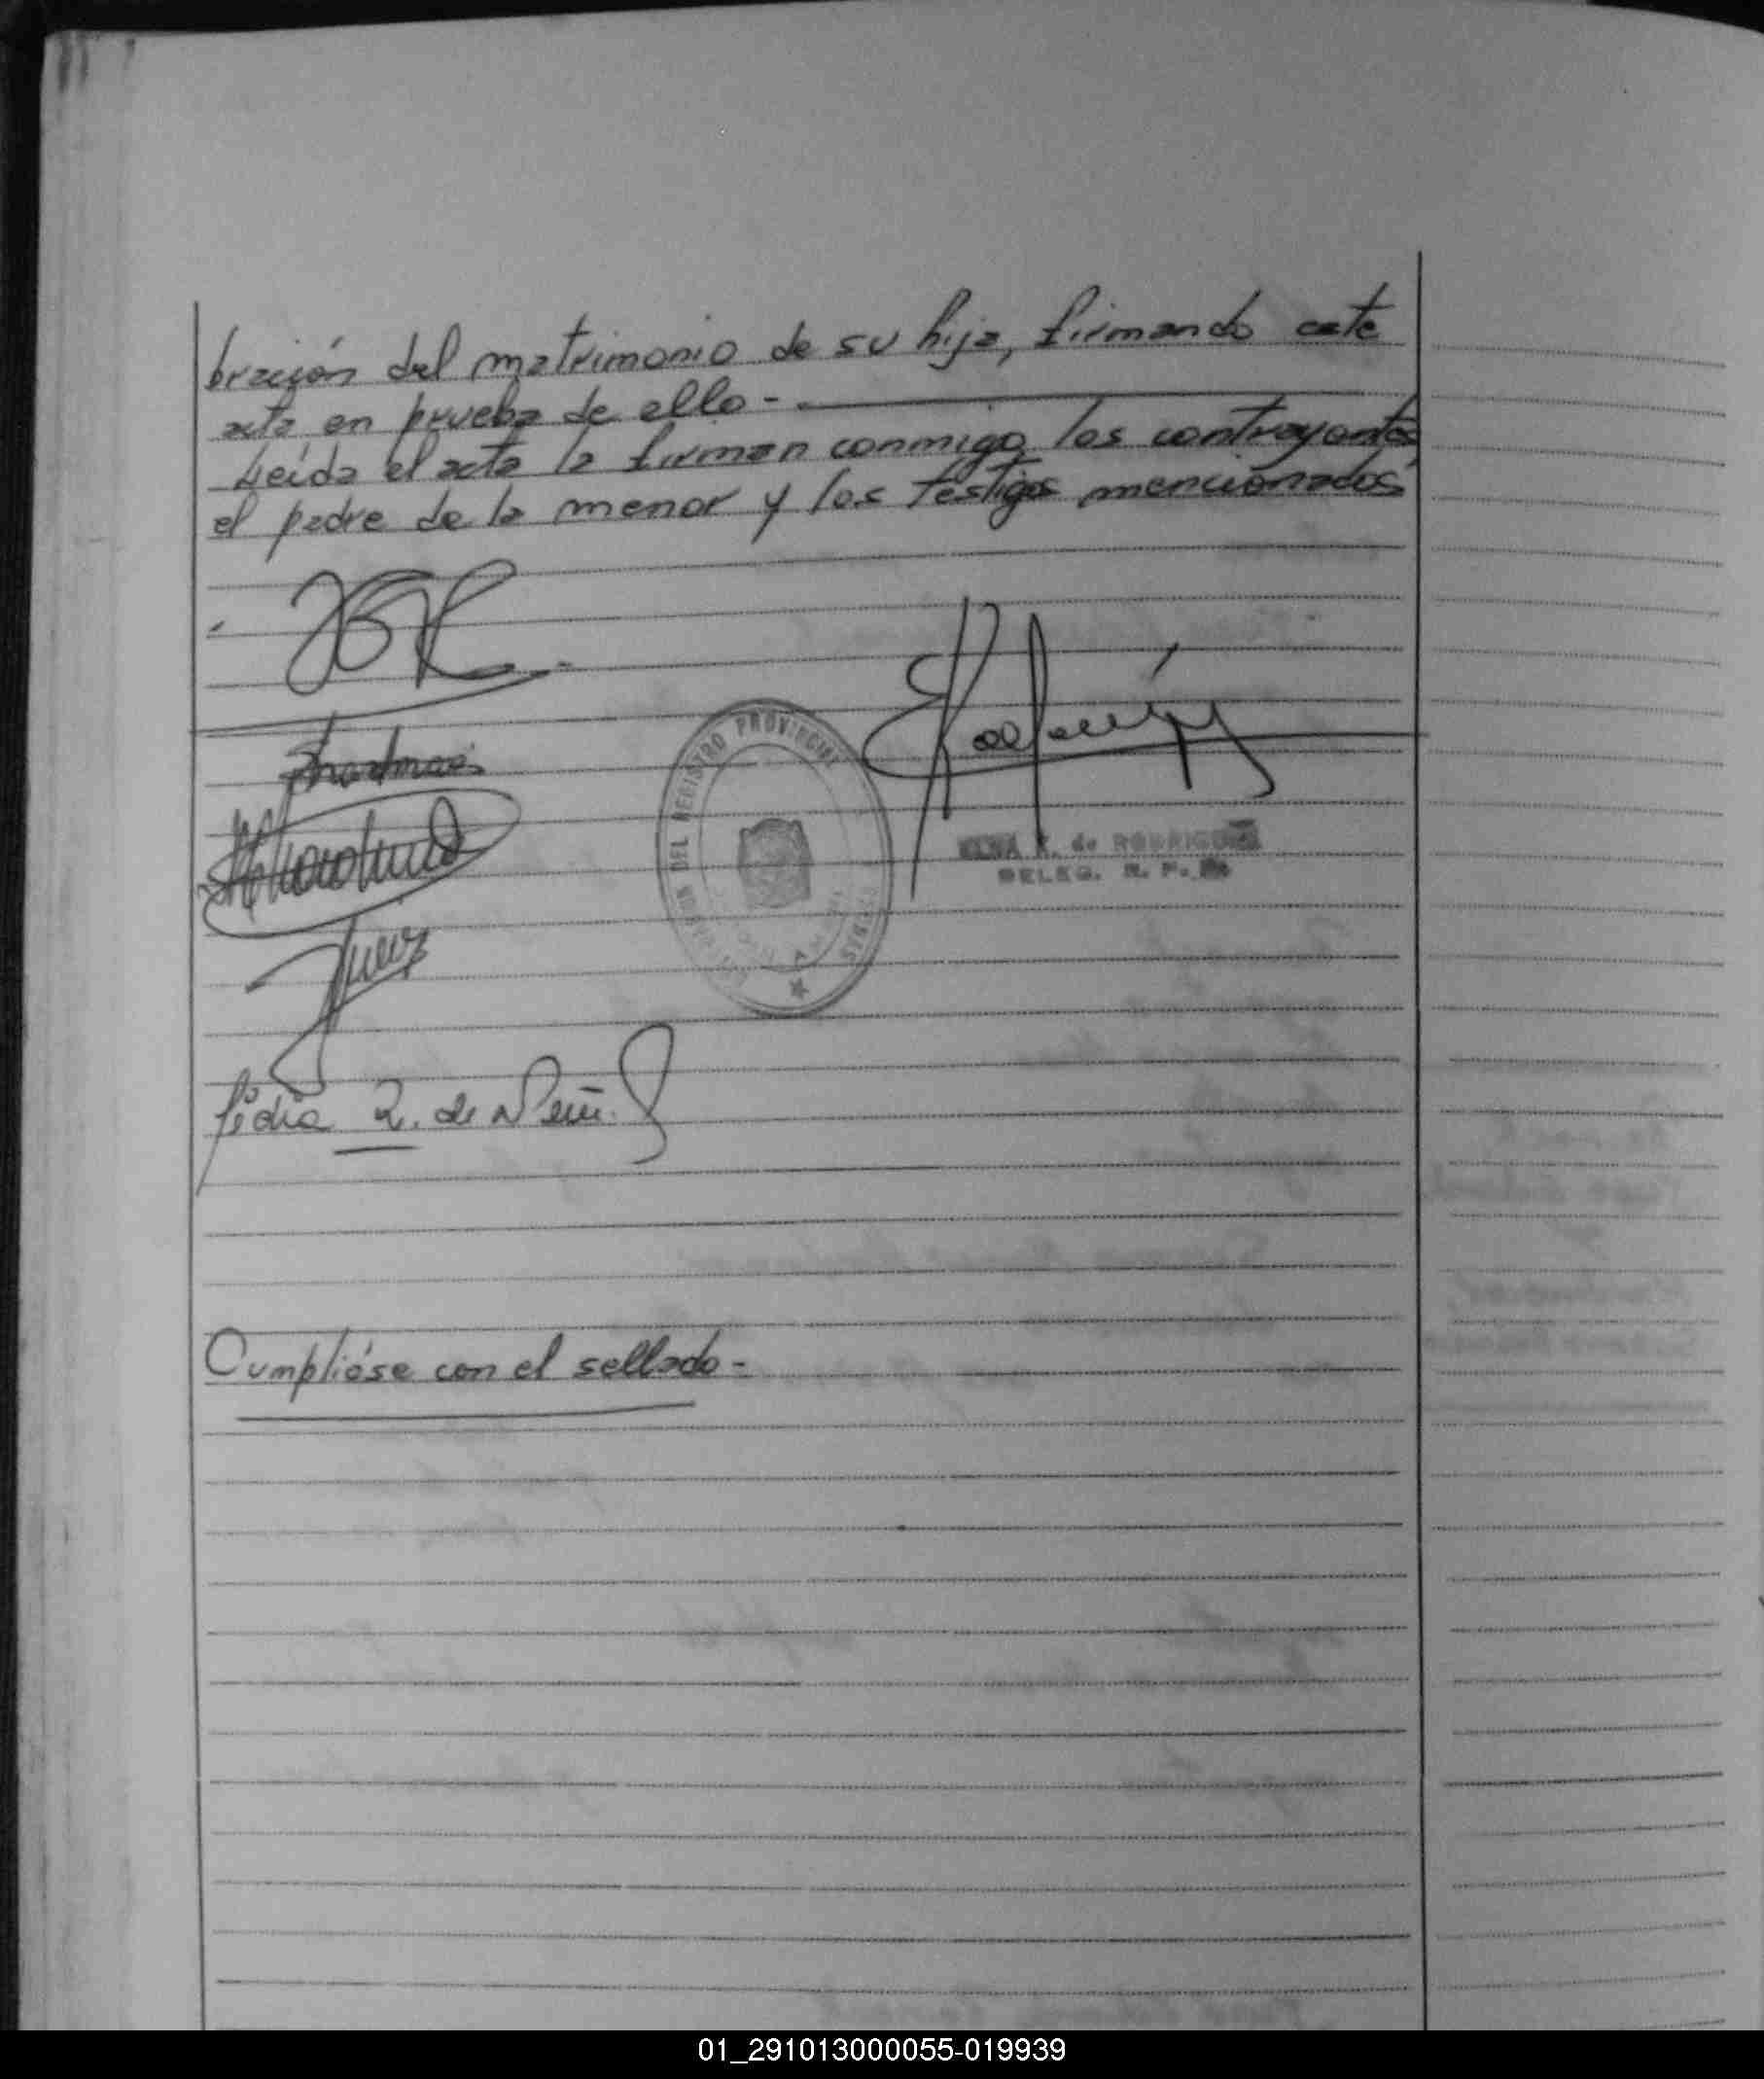 bración del matrimonio de su hija, firmando este
acta en prueba de ello-.
Leída el acta la firman conmigo los contrayentes
el padre de la menor y los testigos mencionados
DEL REGISTRO PROVINCIAL
de RODRIGUEZ
DELEG. R. P.
Lidia Z. de
Cumplióse con el sellado-
01_291013000055-019939